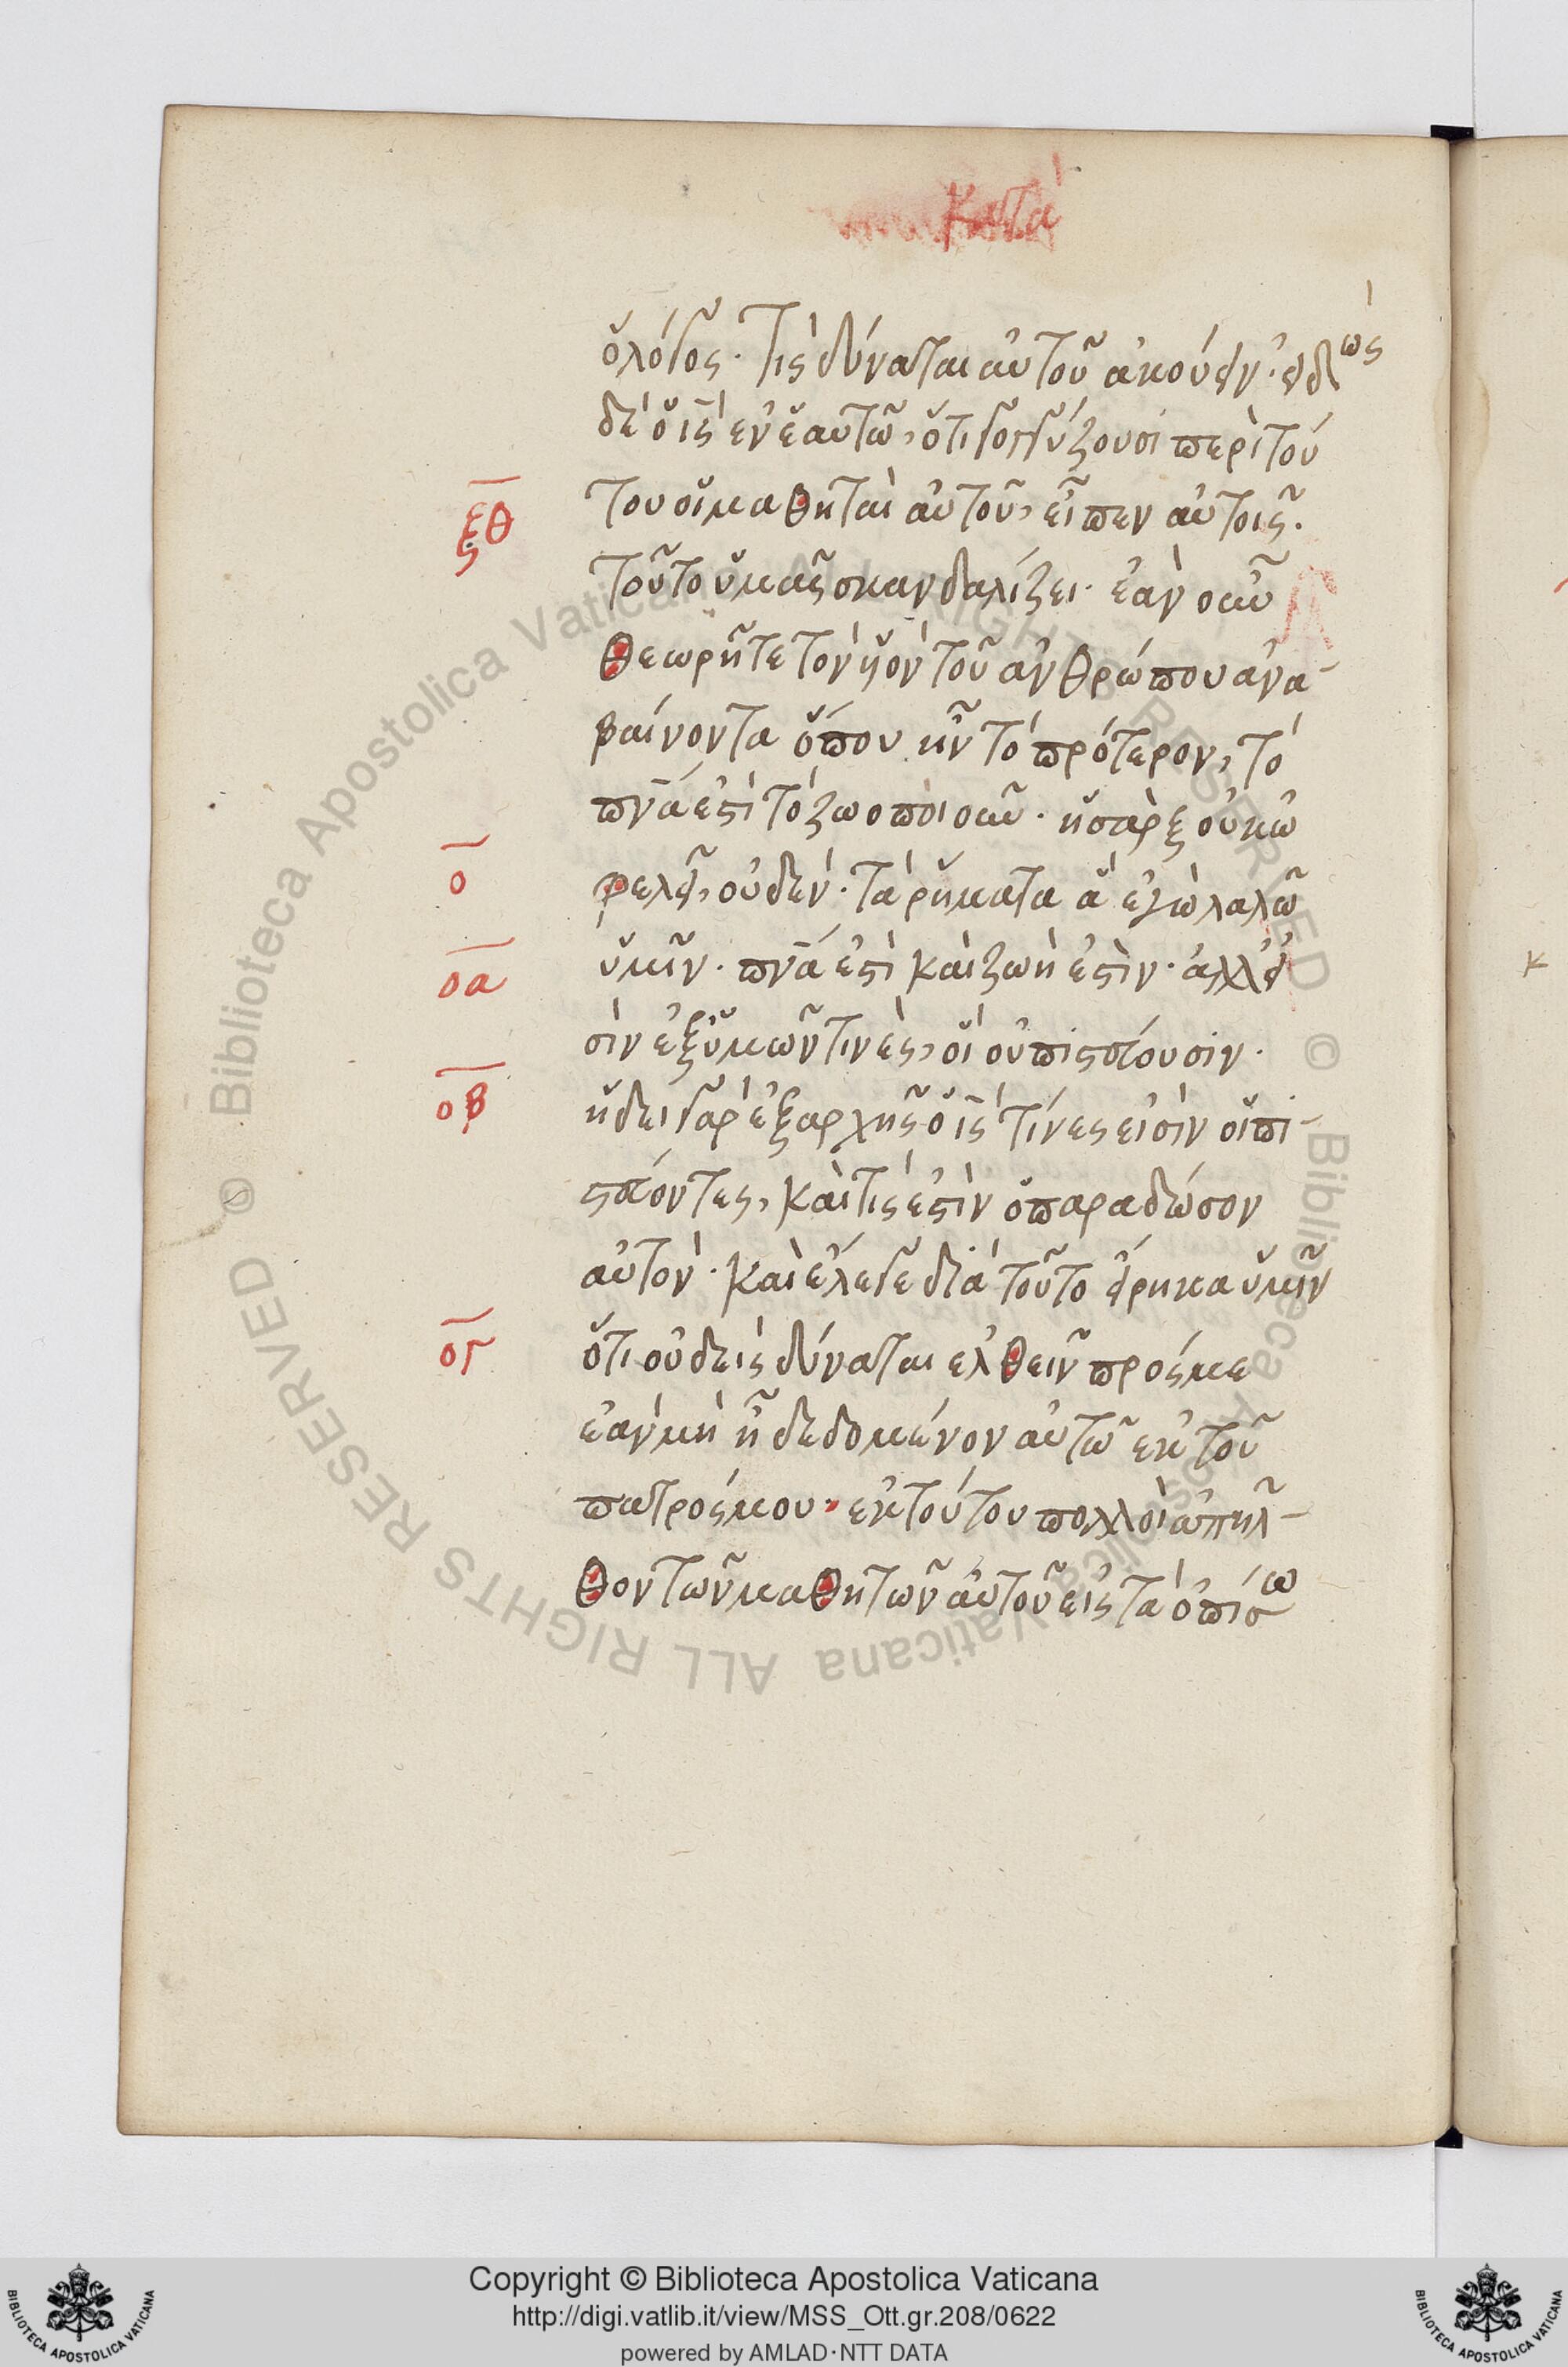 Κατὰ
ὁ λόγος· τίς δύναται αὐτοῦ ἀκούειν· εἰδὼς
δὲ ὁ ις ἐν ἑαυτῶ, ὅτι γογγύζουσι περὶ τού
του οἱ μαθηταὶ αὐτοῦ, εἶπεν αὐτοῖς.
τοῦτο ὑμᾶς σκανδαλίζει· ἐὰν οὖν
θεωρῆτε τὸν υἱὸν τοῦ ἀνθρώπου ἀνα-
βαίνοντα ὅπου ἦν τὸ πρότερον, τὸ
πνά ἐστὶ τὸ ζωοποιοῦν· ἡ σὰρξ οὐκ ὠ
φελεῖ, οὐδέν· τὰ ῥήματα ἃ ἐγὼ λαλῶ
ὑμῖν· πνά ἐστὶ καὶ ζωὴ ἐστὶν· ἀλλ' εἰ
σὶν ἐξ ὑμῶν τινὲς, οἳ οὐ πιστεύουσιν·
ἤδει γὰρ ἐξαρχῆς ὁ ις τίνες εἰσὶν οἱ πι-
στεύοντες, καὶ τίς ἐστὶν ὁ παραδώσον
αὐτὸν· καὶ ἔλεγε διὰ τοῦτο εἴρηκα ὑμῖν
ὅτι οὐδεὶς δύναται ἐλθεῖν πρός με
ἐὰν μὴ ἦ δεδομένον αὐτῶ ἐκ τοῦ
πατρός μου· ἐκ τούτου πολλοὶ ἀπῆλ-
θον τῶν μαθητῶν αὐτοῦ εἰς τὰ ὀπίσω
ξθ
ο
οα
οβ
ογ
κ
© Biblioteca Apostolica Vaticana ALL RIGHTS RESERVED © Biblioteca Apostolica Vaticana ALL RIGHTS RESERVED
Copyright © Biblioteca Apostolica Vaticana
http://digi.vatlib.it/view/MSS_Ott.gr.208/0622
powered by AMLAD·NTT DATA
BIBLIOTECA APOSTOLICA VATICANA
BIBLIOTECA APOSTOLICA VATICANA